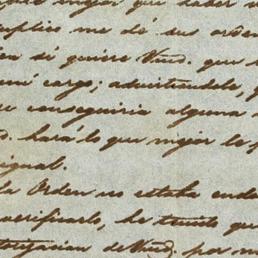 mejor que saber
me dé sus orden
si quiere Vmd. que
cargo; advirtiendole, q
conseguiria alguna
hará lo que mejor le p
igual.
la Orden no estaba
verificarlo, he tenido que
de Vmd. por m